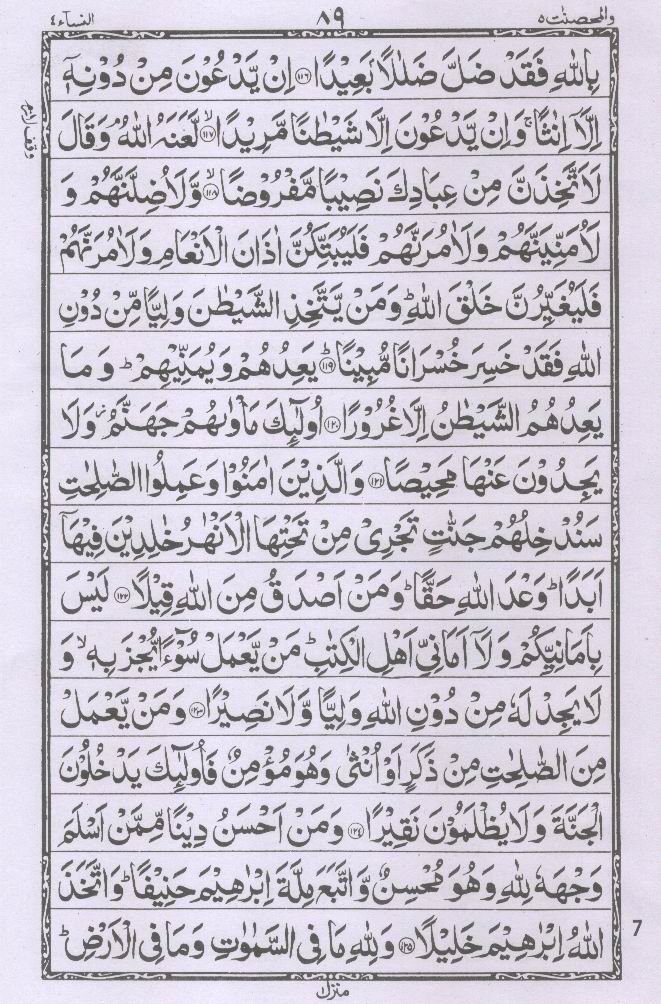 والمحصنت ٥ ٨٩ النسآء ٤
بِاللّٰهِ فَقَدْ ضَلَّ ضَلٰلًاۢ بَعِیْدًا ﴿۱۱۶﴾ اِنْ یَّدْعُوْنَ مِنْ دُوْنِهٖۤ
اِلَّاۤ اِنٰثًا ۚ وَاِنْ یَّدْعُوْنَ اِلَّا شَیْطٰنًا مَّرِیْدًا ﴿۱۱۷﴾ۙ لَّعَنَهُ اللّٰهُ ۘ وَقَالَ
لَاَتَّخِذَنَّ مِنْ عِبَادِكَ نَصِیْبًا مَّفْرُوْضًا ﴿۱۱۸﴾ۙ وَّلَاُضِلَّنَّهُمْ وَ
لَاُمَنِّیَنَّهُمْ وَلَاٰمُرَنَّهُمْ فَلَیُبَتِّكُنَّ اٰذَانَ الْاَنْعَامِ وَلَاٰمُرَنَّهُمْ
فَلَیُغَیِّرُنَّ خَلْقَ اللّٰهِ ؕ وَمَنْ یَّتَّخِذِ الشَّیْطٰنَ وَلِیًّا مِّنْ دُوْنِ
اللّٰهِ فَقَدْ خَسِرَ خُسْرَانًا مُّبِیْنًا ﴿۱۱۹﴾ؕ یَعِدُهُمْ وَیُمَنِّیْهِمْ ؕ وَمَا
یَعِدُهُمُ الشَّیْطٰنُ اِلَّا غُرُوْرًا ﴿۱۲۰﴾ اُولٰٓئِكَ مَاْوٰىهُمْ جَهَنَّمُ ؗ وَلَا
یَجِدُوْنَ عَنْهَا مَحِیْصًا ﴿۱۲۱﴾ وَالَّذِیْنَ اٰمَنُوْا وَعَمِلُوا الصّٰلِحٰتِ
سَنُدْخِلُهُمْ جَنّٰتٍ تَجْرِیْ مِنْ تَحْتِهَا الْاَنْهٰرُ خٰلِدِیْنَ فِیْهَاۤ
اَبَدًا ؕ وَعْدَ اللّٰهِ حَقًّا ؕ وَمَنْ اَصْدَقُ مِنَ اللّٰهِ قِیْلًا ﴿۱۲۲﴾ لَیْسَ
بِاَمَانِیِّكُمْ وَلَاۤ اَمَانِیِّ اَهْلِ الْكِتٰبِ ؕ مَنْ یَّعْمَلْ سُوْٓءًا یُّجْزَ بِهٖ ۙ وَ
لَا یَجِدْ لَهٗ مِنْ دُوْنِ اللّٰهِ وَلِیًّا وَّلَا نَصِیْرًا ﴿۱۲۳﴾ وَمَنْ یَّعْمَلْ
مِنَ الصّٰلِحٰتِ مِنْ ذَكَرٍ اَوْ اُنْثٰی وَهُوَ مُؤْمِنٌ فَاُولٰٓئِكَ یَدْخُلُوْنَ
الْجَنَّةَ وَلَا یُظْلَمُوْنَ نَقِیْرًا ﴿۱۲۴﴾ وَمَنْ اَحْسَنُ دِیْنًا مِّمَّنْ اَسْلَمَ
وَجْهَهٗ لِلّٰهِ وَهُوَ مُحْسِنٌ وَّاتَّبَعَ مِلَّةَ اِبْرٰهِیْمَ حَنِیْفًا ؕ وَاتَّخَذَ
اللّٰهُ اِبْرٰهِیْمَ خَلِیْلًا ﴿۱۲۵﴾ وَلِلّٰهِ مَا فِی السَّمٰوٰتِ وَمَا فِی الْاَرْضِ ؕ
منزل ١
وقف لازم
7